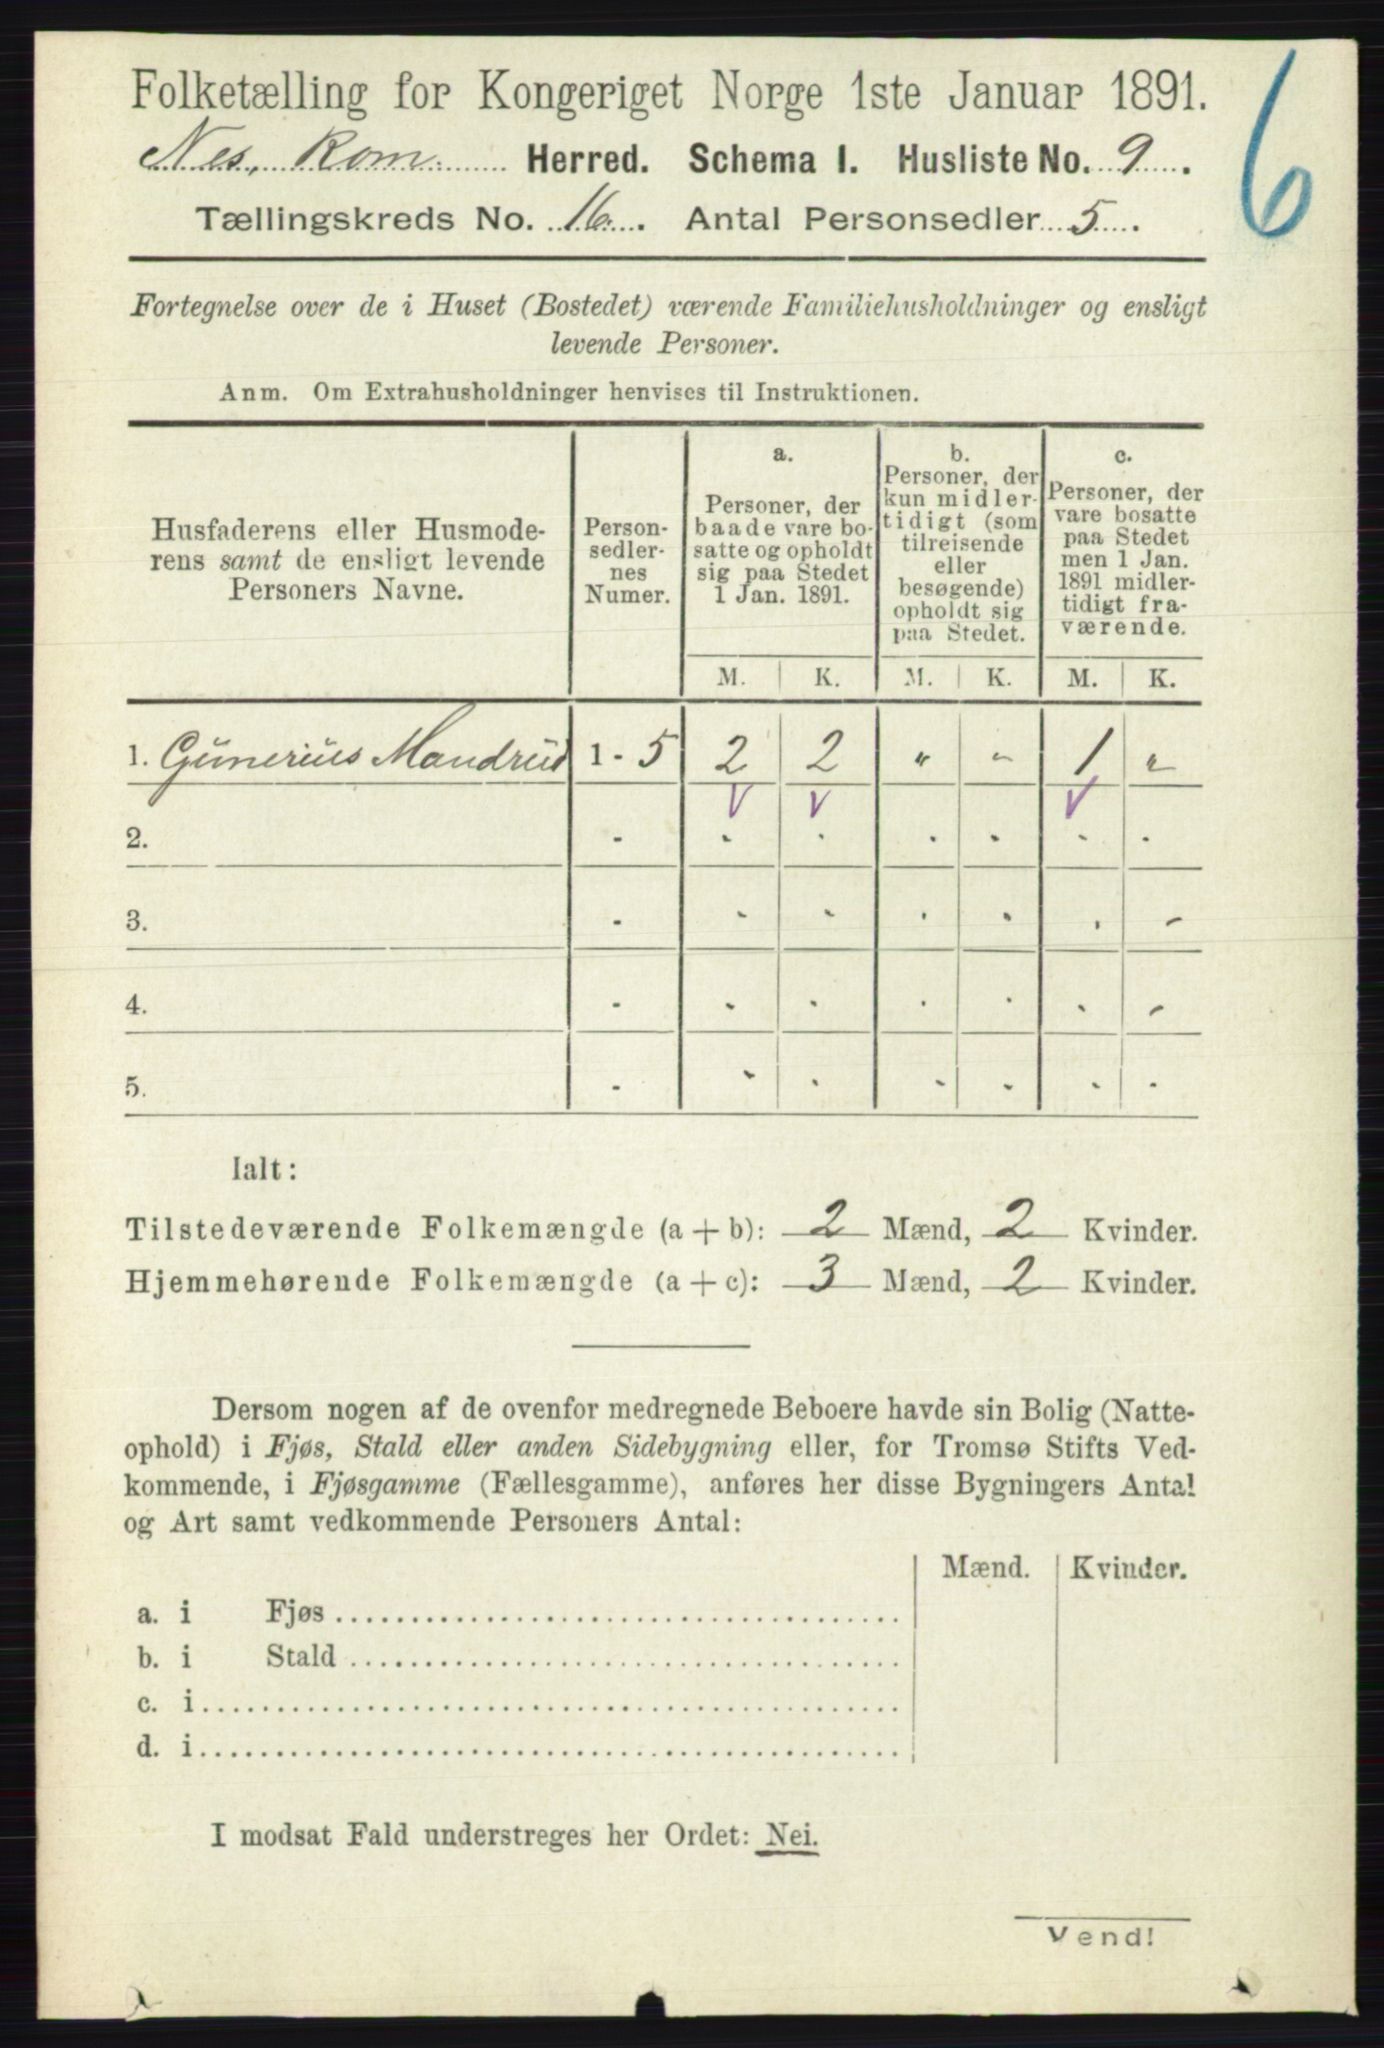 Folketælling for Kongeriget Norge 1ste Januar 1891.
6
Nes, Rom. Herred. Schema I. Husliste No. 9.
Tællingskreds No. 16. Antal Personsedler 5.
Fortegnelse over de i Huset (Bostedet) værende Familiehusholdninger og ensligt
levende Personer.
Anm. Om Extrahusholdninger henvises til Instruktionen.
Husfaderens eller Husmode-
rens samt de ensligt levende
Personers Navne.
Person-
sedler-
nes
Numer.
a.
Personer, der
baade vare bo-
satte og opholdt
sig paa Stedet
1 Jan. 1891.
b.
Personer, der
kun midler-
tidigt (som
tilreisende
eller
besøgende)
opholdt sig
paa Stedet.
c.
Personer, der
vare bosatte
paa Stedet
men 1 Jan.
1891 midler-
tidigt fra-
værende.
M. K. M. K. M. K.
1. Gunerius Mandrud 1 - 5 2 2 " " 1 "
2. - - - - - - -
3. - - - - - - -
4. - - - - - - -
5. - - - - - - -
Ialt:
Tilstedeværende Folkemængde (a + b): 2 Mænd, 2 Kvinder.
Hjemmehørende Folkemængde (a + c): 3 Mænd, 2 Kvinder.
Dersom nogen af de ovenfor medregnede Beboere havde sin Bolig (Natte-
ophold) i Fjøs, Stald eller anden Sidebygning eller, for Tromsø Stifts Ved-
kommende, i Fjøsgamme (Fællesgamme), anføres her disse Bygningers Antal
og Art samt vedkommende Personers Antal:
Mænd. Kvinder.
a. i Fjøs
b. i Stald
c. i
d. i
I modsat Fald understreges her Ordet: Nei.
Vend!